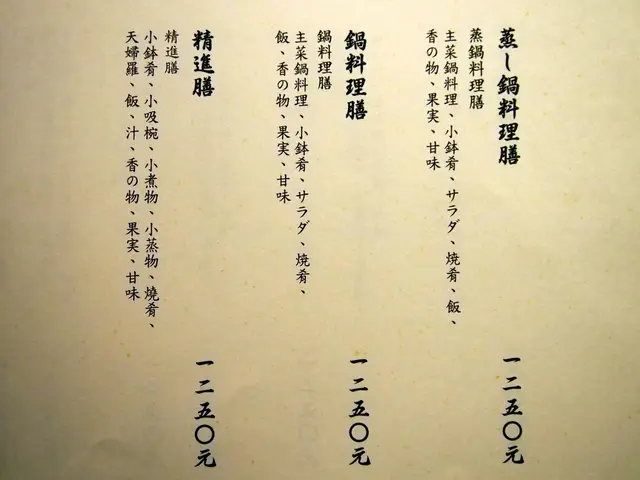 蒸し鍋料理膳
一二五〇元
蒸鍋料理膳
主菜鍋料理、小鉢肴、サラダ、焼肴、飯、
香の物、果実、甘味
鍋料理膳
一二五〇元
鍋料理膳
主菜鍋料理、小鉢肴、サラダ、焼肴、
飯、香の物、果実、甘味
精進膳
一二五〇元
精進膳
小鉢肴、小吸椀、小煮物、小蒸物、燒肴、
天婦羅、飯、汁、香の物、果実、甘味